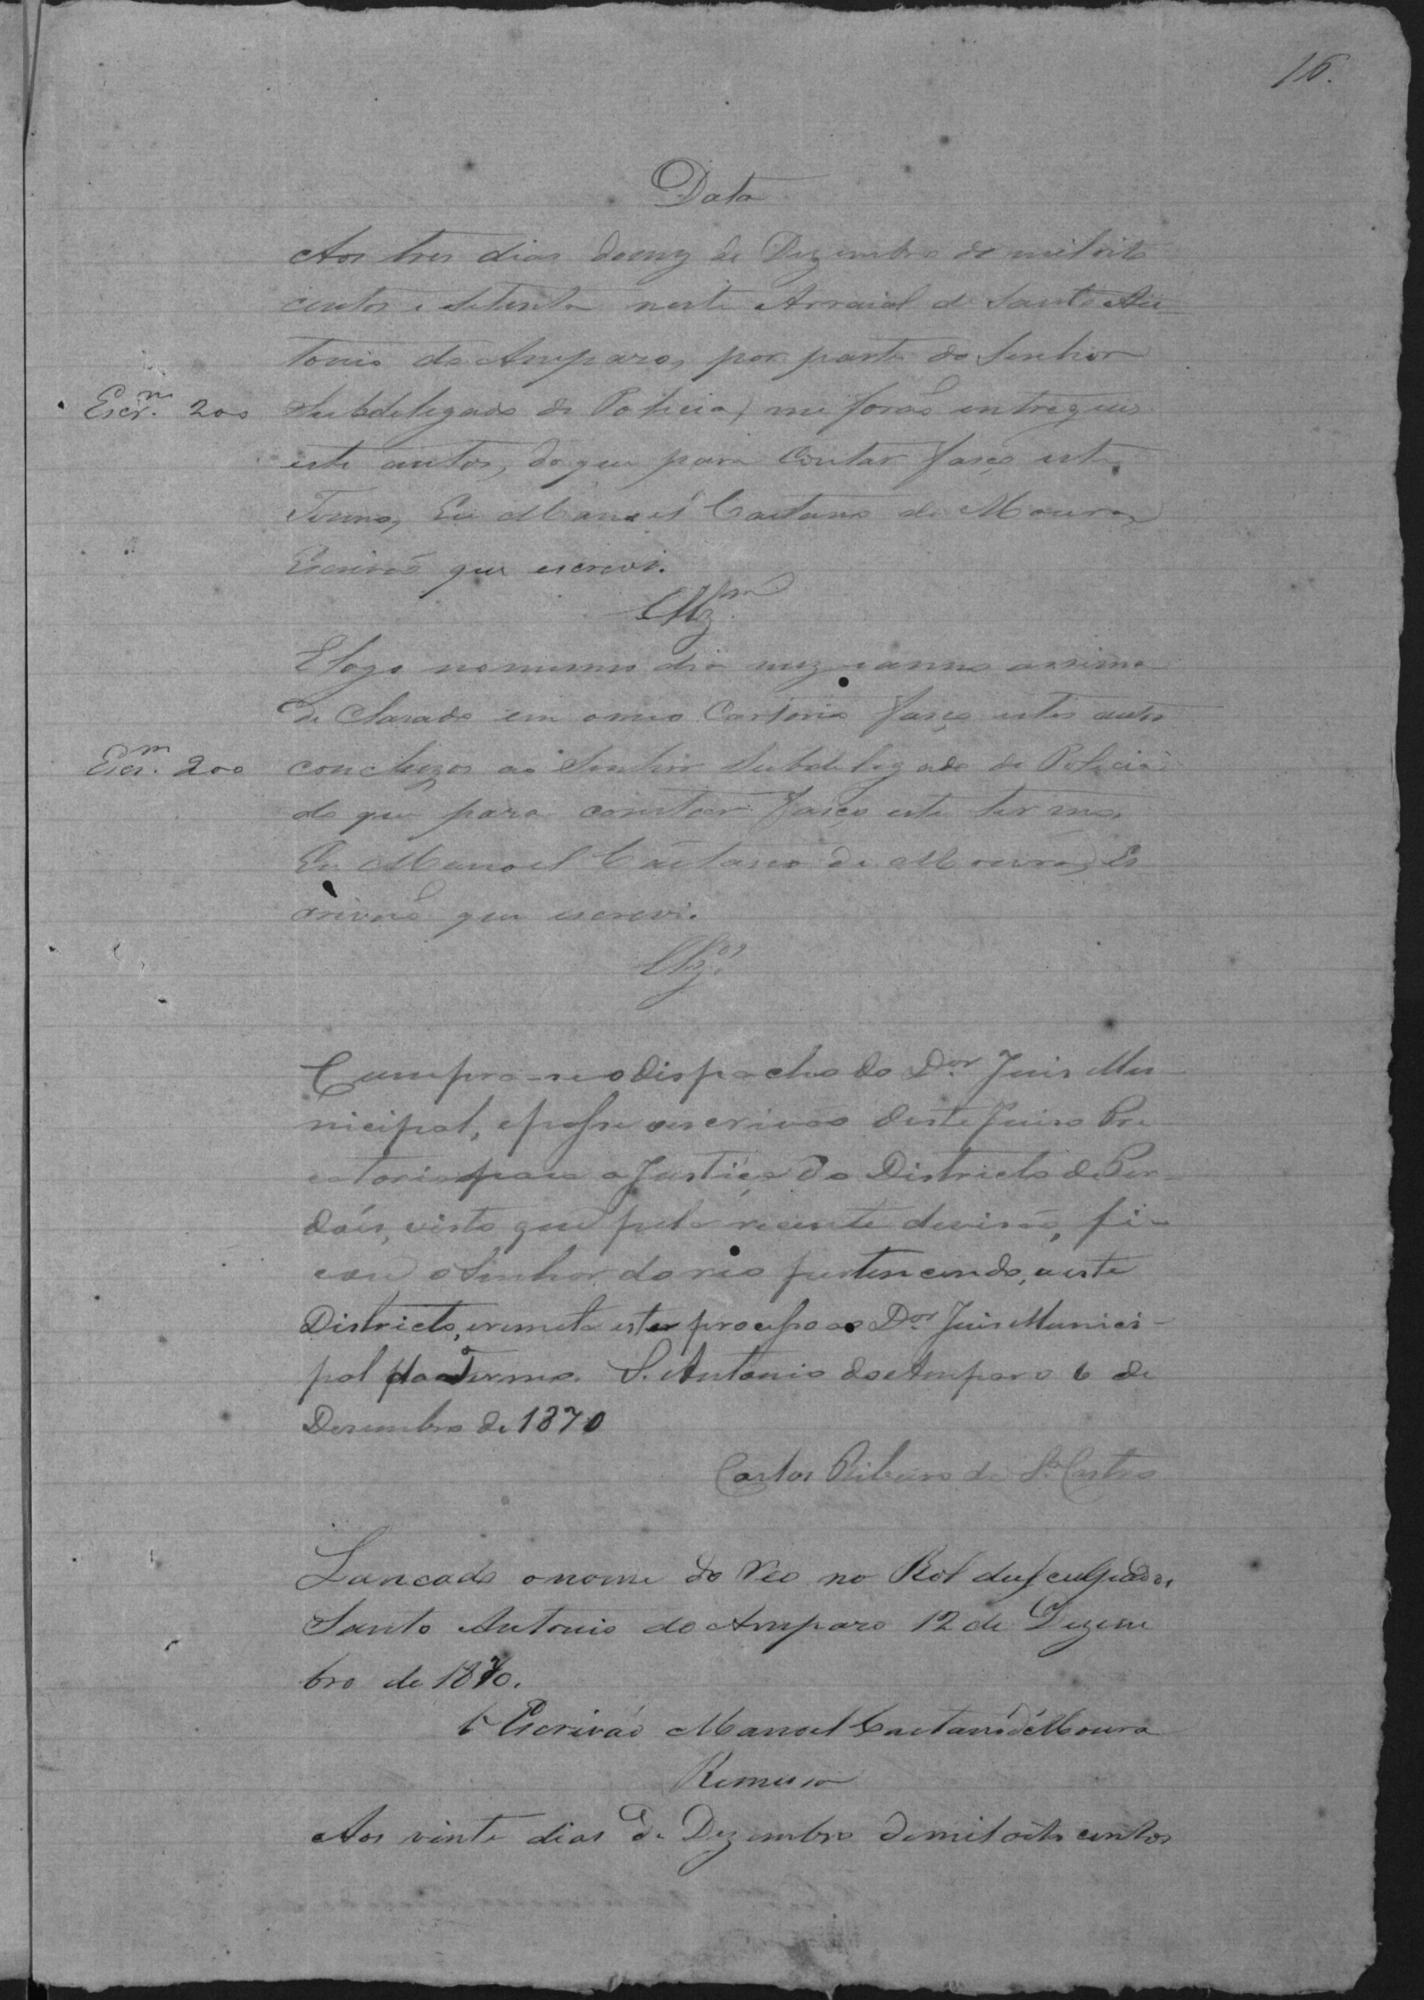 16.
Data
Aos tres dias domez de Dezembro de mil oito
centos e setenta neste Arraial de Santo An-
tonio do Amparo, por parte do Senhor
Escr.m 200 Subdelegado de Policia, me forão entregues
este autos, do que para Contar faço este
Termo, Eu Manoel Caetano de Moura,
Escrivão que escrevi.
Clz.m
E logo no mesmo dia mez e anno assima
de clarado em o meo Cartorio faço estes autos
Escr.m 200 concluzos ao Senhor Subdelegado de Policia
do que para constar faço este termo,
Eu Manoel Caetano de Moura, Es
crivão que escrevi.
Clz.os
Cumpra-se o dispacho do D.or Juis Mu-
nicipal, e passe o escrivão deste Juiso Pre
catoria para a Justiça do Districto de Per-
dões, visto que pela recente devisão, fi-
cou o Senhor do reo pertencendo, a este
Districto, e remeta este processo ao D.or Juis Munici-
pal do Termo. S. Antonio do Amparo 6 de
Desembro de 1870
Carlos Ribeiro de S. Castro
Lancado o nome do Reo no Rol dus culpados
Santo Antonio do Amparo 12 de Dezem
bro de 1870.
O Escrivão Manoel Caetano de Moura
Remessa
Aos vinte dias de Dezembro de mil oito centos